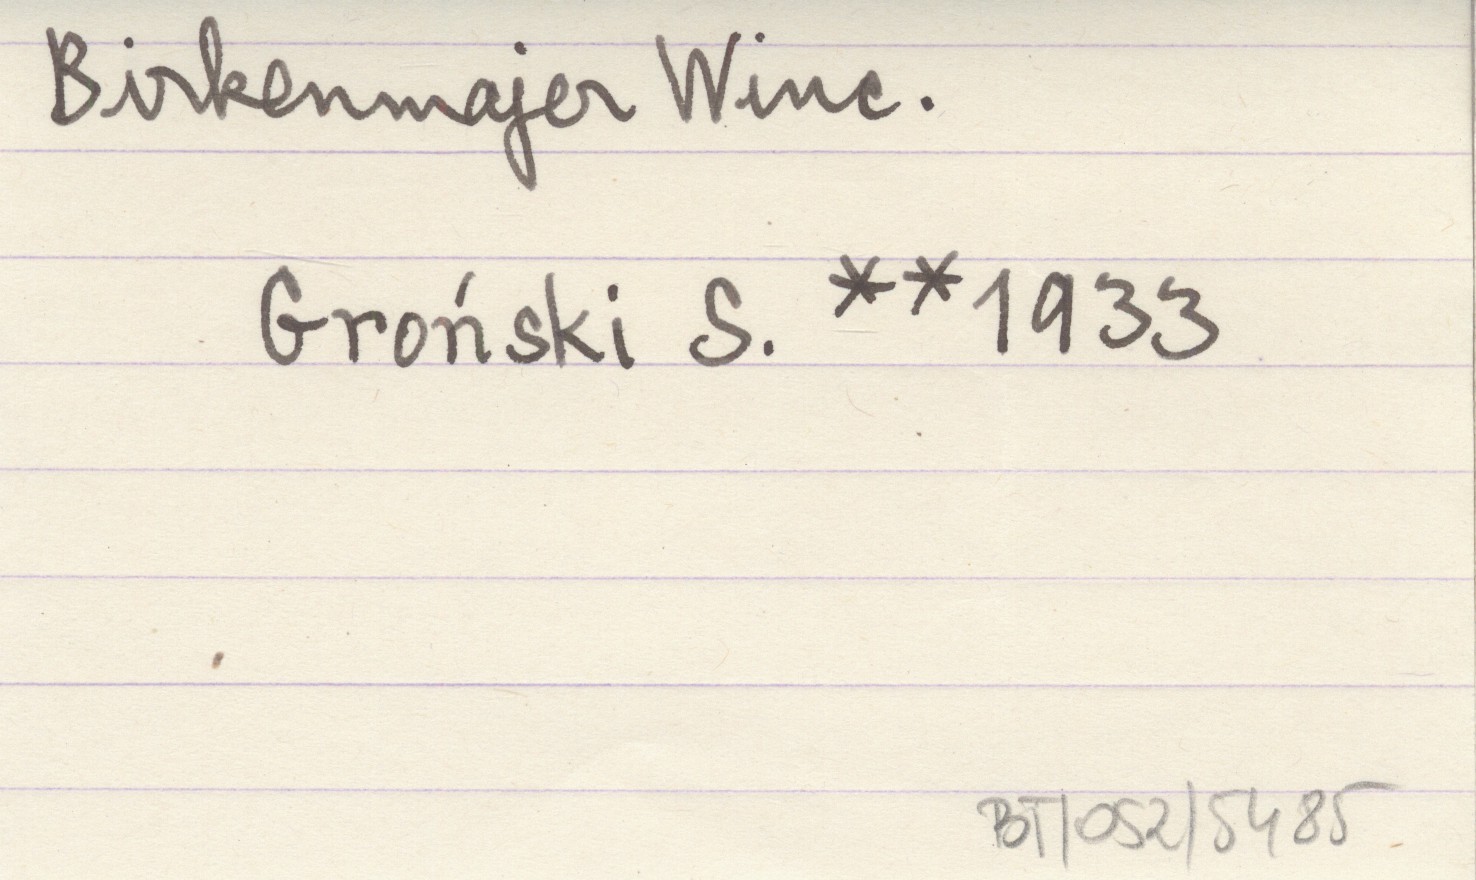 Birkenmajer Winc.
Groński S. **1933
BT/052/5485